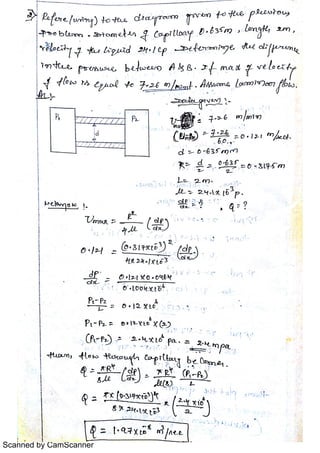 3) Refere/using) to the diagram given to the previous
problem. Diameter of capillary 0.635m, length 2m,
velocity of the liquid 24.1cp Determine the difference
in the pressure between A & B. If max of velocity
of flow is equal to 7.26 m/mint. Assume laminar flow.
Data given :-
= 7.26 m/min
= 7.26/60 = 0.121 m/sec.
P₁ P₂
d
d = 0.635mm
R = d/2 = 0.635/2 = 0.3175m
L = 2m.
μ = 24.1x10⁻³p.
dp/dx = ? , Q = ?
Umax = R²/4μ (dp/dx)
0.121 = (0.317x10⁻³)²/4x24.1x10⁻³ (dp/dx)
dp/dx = 0.121x0.0964/0.1004x10⁻⁶
P₁-P₂/L = 0.12x10⁶
P₁-P₂ = 0.12x10⁶x(2)
(P₁-P₂) = 2.4x10⁶ pa. = 2.4mpa
than, flow through capillary be comes.
Q = πR⁴/8μ (dp/dx) = πR⁴/μ(8) (P₁-P₂)/L
Q = πx(0.317x10⁻³)⁴/8x24.1x10⁻³ x (2.4x10⁶/2)
Q = 1.97x10⁻⁸ m³/sec
Scanned by CamScanner